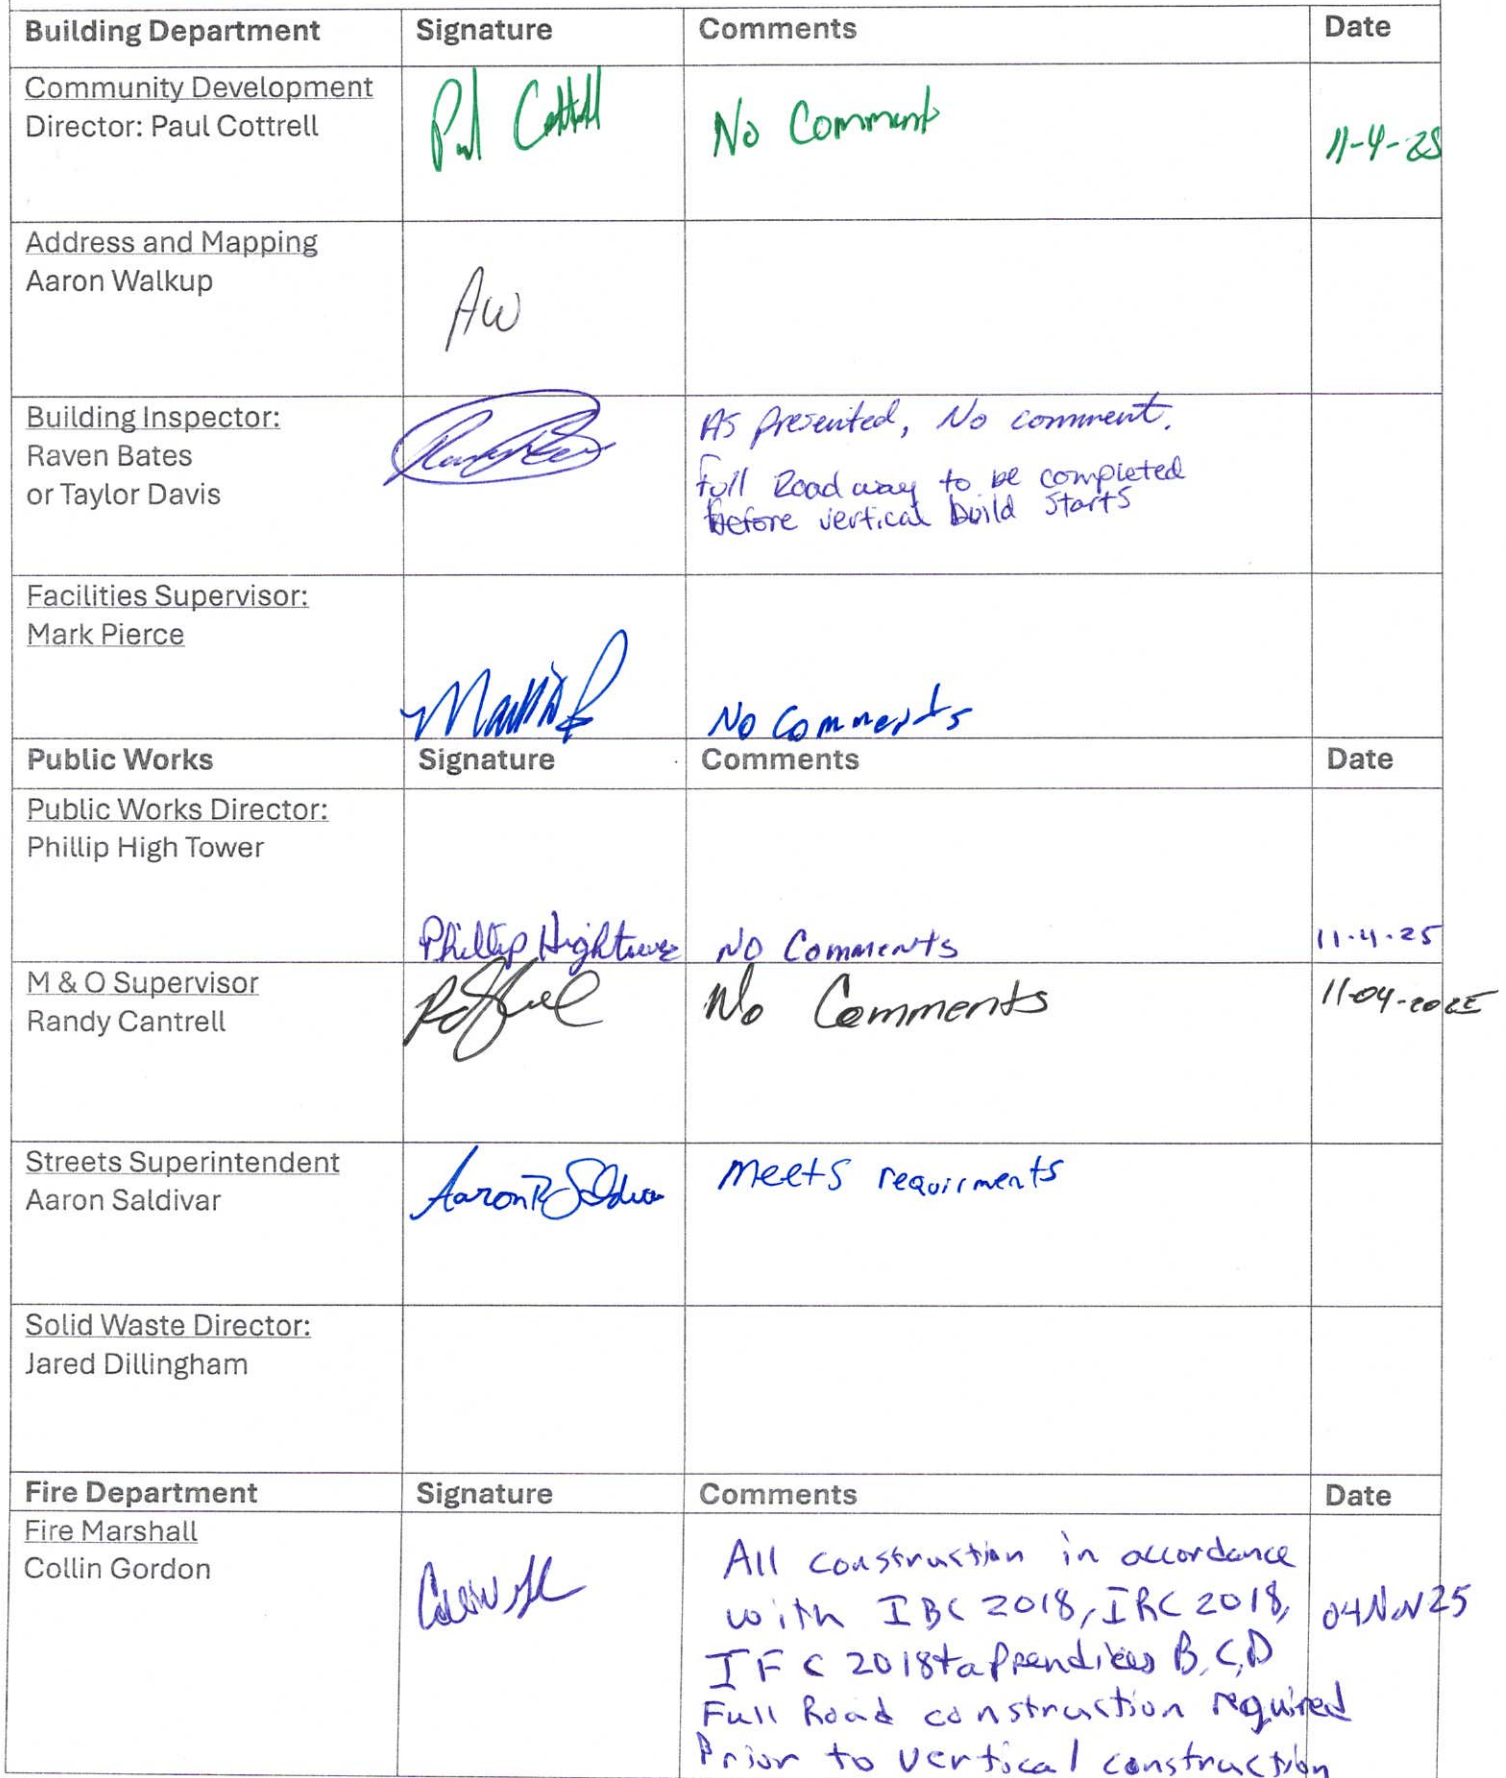 Building Department Signature Comments Date
Community Development
Director: Paul Cottrell Paul Cottrell No Comment 11-4-25
Address and Mapping
Aaron Walkup
AW
Building Inspector:
Raven Bates
or Taylor Davis
As presented, No comment.
Full Roadway to be completed
before vertical build starts
Facilities Supervisor:
Mark Pierce
No Comments
Public Works Signature Comments Date
Public Works Director:
Phillip High Tower
Phillip Hightower No Comments 11-4-25
M & O Supervisor
Randy Cantrell
No Comments 11-04-2025
Streets Superintendent
Aaron Saldivar
Aaron R Saldivar meets requirments
Solid Waste Director:
Jared Dillingham
Fire Department Signature Comments Date
Fire Marshall
Collin Gordon
All construction in accordance
with IBC 2018, IRC 2018, 04Nov25
IFC 2018 + appendices B, C, D
Full Road construction required
Prior to vertical construction